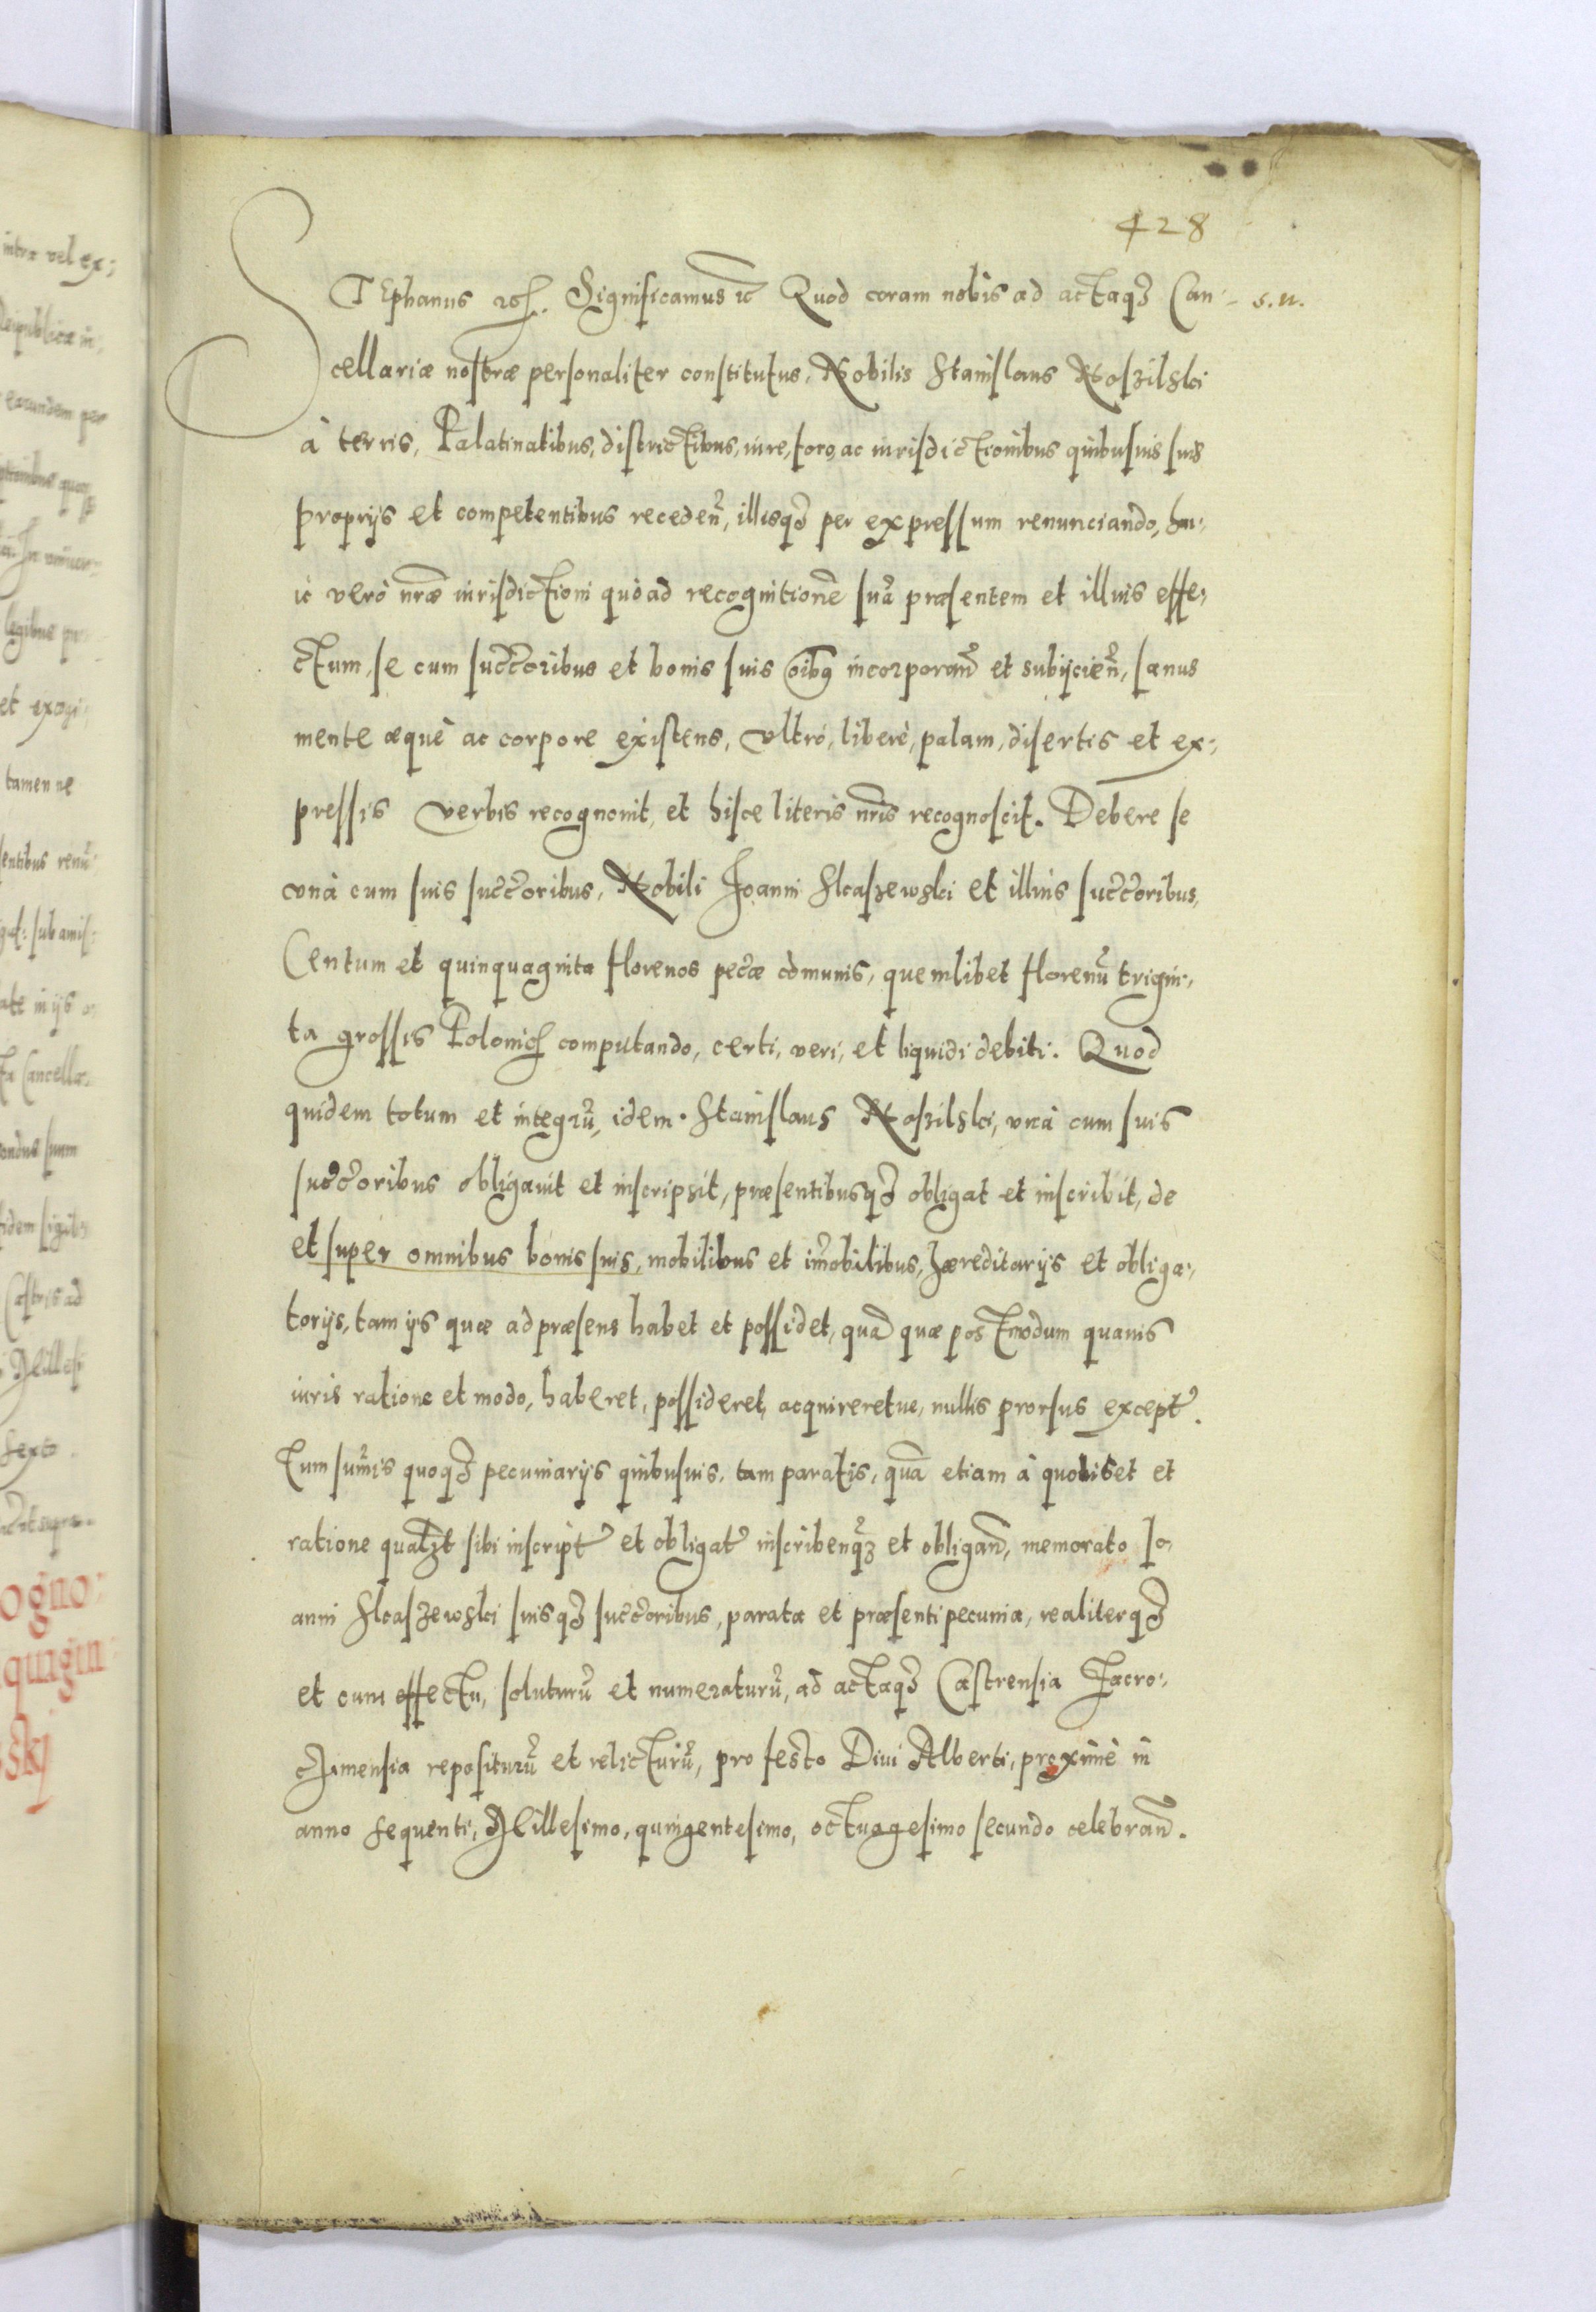 428
STEphanus etc. Significamus etc Quod coram nobis ad actaqȝ Can- s. n.
cellariæ nostræ personaliter constitutus, Nobilis Stanislaus Noszilski
à terris, Palatinatibus, districtibus, iure, foro, ac iurisdictionibus quibusuis suis
proprijs et competentibus receden̄, illisqȝ per expressum renunciando, hu-
ic verò nr̄æ iurisdictioni quòad recognitionē suā præsentem et illius effe-
ctum, se cum succ̄oribus et bonis suis oībꝰ incorporan̄ et subijcien̄, sanus
mente æquè ac corpore existens, vltrò, liberè, palam, disertis et ex-
pressis verbis recognouit, et hisce literis nr̄is recognoscit. Debere se
vnà cum suis succ̄oribus, Nobili Joanni Skaszewski et illius succ̄oribus,
Centum et quinquaginta florenos pec̄æ cōmunis, quemlibet florenū trigin-
ta grossis Polonic̄ computando, certi, veri, et liquidi debiti. Quod
quidem totum et integrū, idem Stanislaus Noszilski, vnà cum suis
succ̄oribus obligauit et inscripsit, præsentibusqȝ obligat et inscribit, de
et super omnibus bonis suis, mobilibus et im̄obilibus, hæreditarijs et obliga-
torijs, tam ijs quæ ad præsens habet et possidet, quā quæ postmodum quauis
iuris ratione et modo, haberet, possideret, acquireretue, nullis prorsus except̄.
Tum sum̄is quoqȝ pecuniarijs quibusuis, tam paratis, quā etiam à quolibet et
ratione sibi inscript̄ et obligat̄ inscriben̄qȝ et obligan̄, memorato Jo-
anni Skaszewski suisqȝ succ̄oribus, parata et præsenti pecunia, realiterqȝ
et cum effectu, soluturū et numeraturū, ad actaqȝ Castrensia
repositurū et relicturū, pro festo Diui Alberti, proximè in
anno sequenti, Millesimo, quingentesimo, octuagesimo secundo celebran̄.